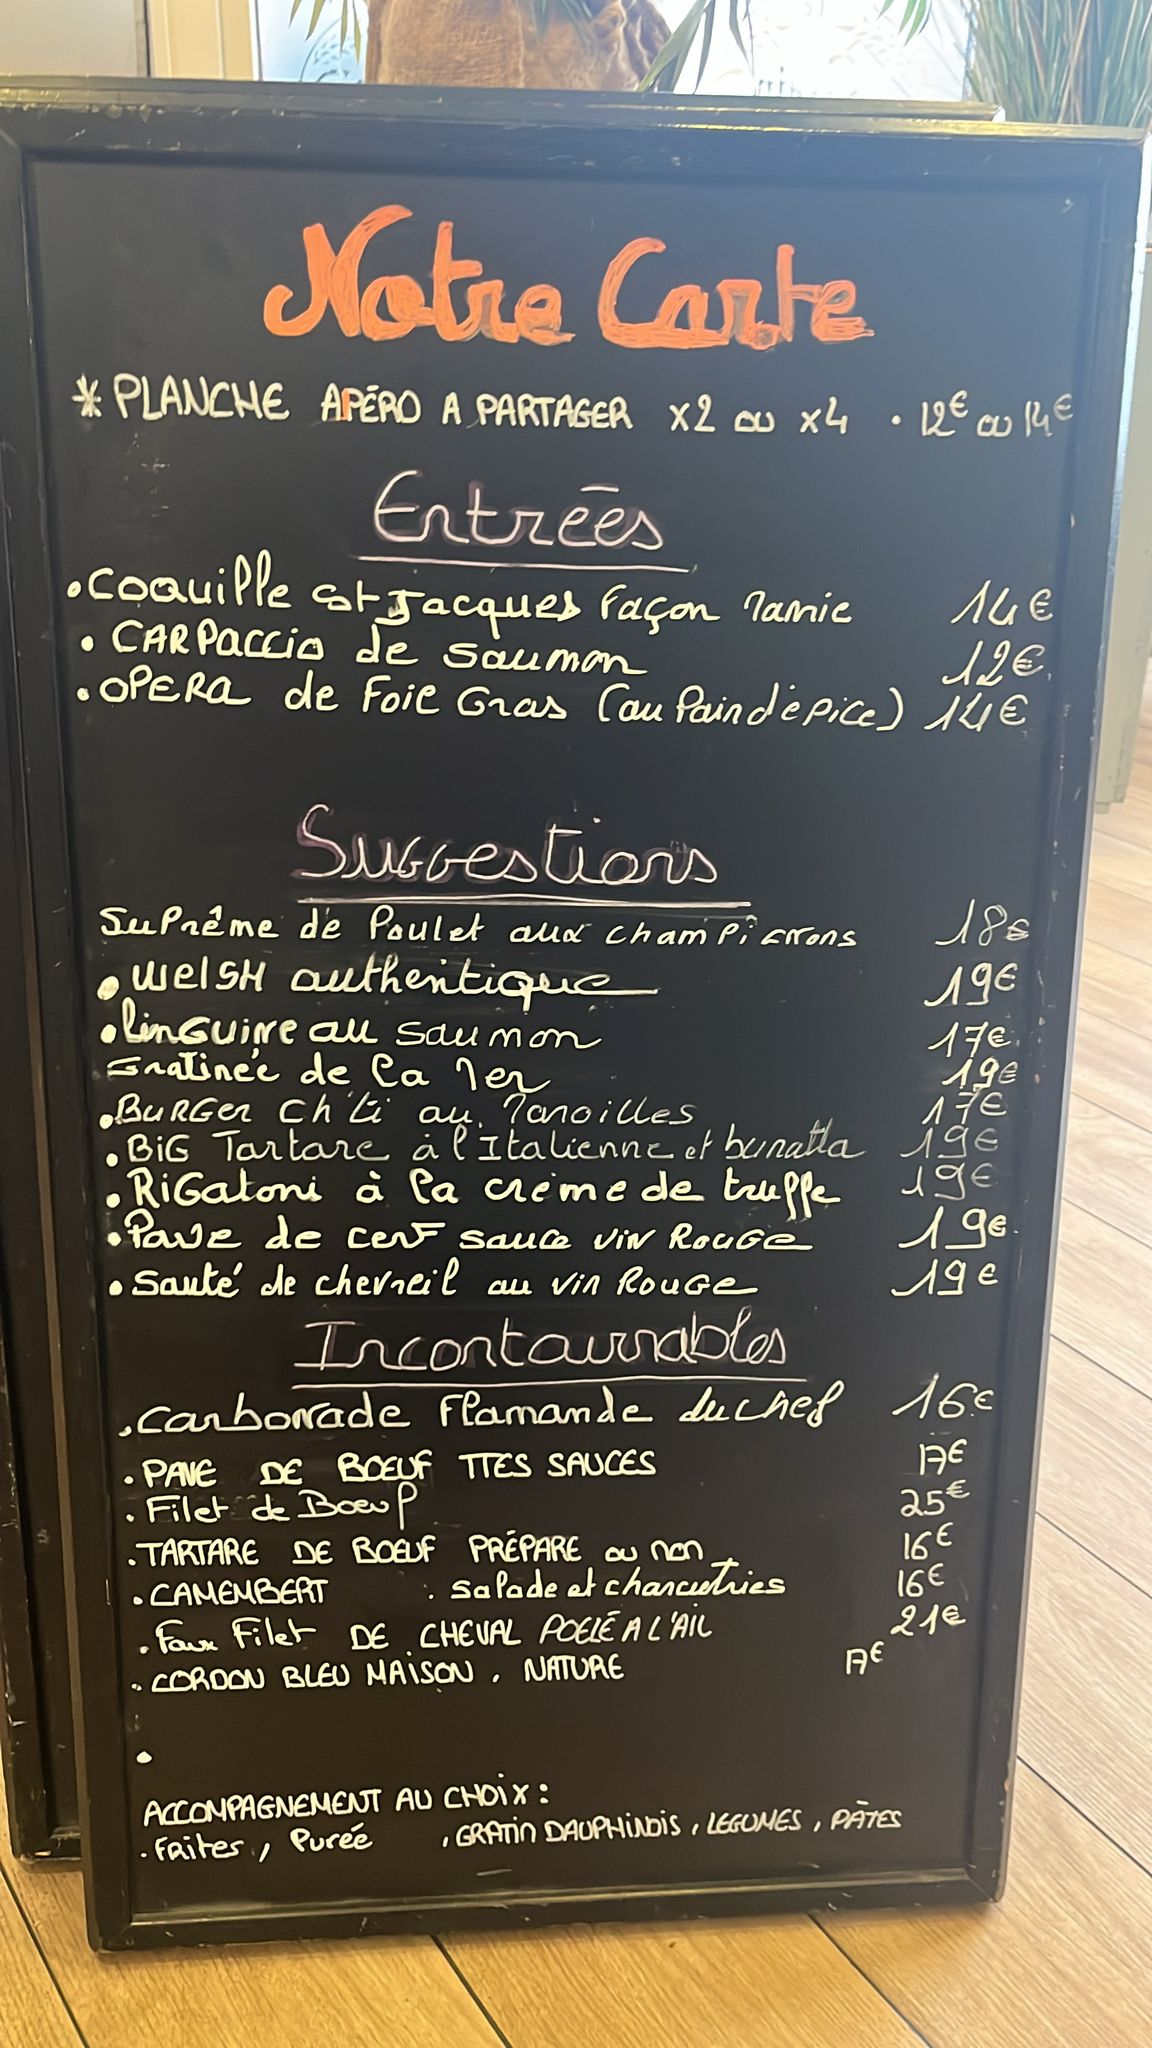 Notre Carte
* PLANCHE APÉRO A PARTAGER x2 ou x4 • 12€ ou 14€
Entrées
• COQUILLE St Jacques Façon Mamie 14€
• CARPaccio de saumon 12€
• OPERA de Foie Gras (au Pain d'épice) 14€
Suggestions
Suprême de Poulet aux champignons 18€
• WelSH authentique 19€
• linguine au saumon 17€
Gratinée de la Mer 19€
• BURGER Ch'ti au Maroilles 17€
• BIG Tartare à l'Italienne et buratta 19€
• RIGatoni à la crème de truffe 19€
• Pave de cerf sauce vin Rouge 19€
• Sauté de chevreil au vin Rouge 19€
Incontournables
• Carbonnade Flamande du chef 16€
• PAVE DE BOEUF TTES SAUCES 17€
• Filet de Boeuf 25€
• TARTARE DE BOEUF PRÉPARE ou non 16€
• CAMEMBERT : salade et charcutries 16€
• Faux Filet DE CHEVAL POELÉ A L'AIL 21€
• CORDON BLEU MAISON, NATURE 17€
•
ACCOMPAGNEMENT AU CHOIX :
• Frites, Purée , GRATIN DAUPHINOIS, LEGUMES, PÂTES